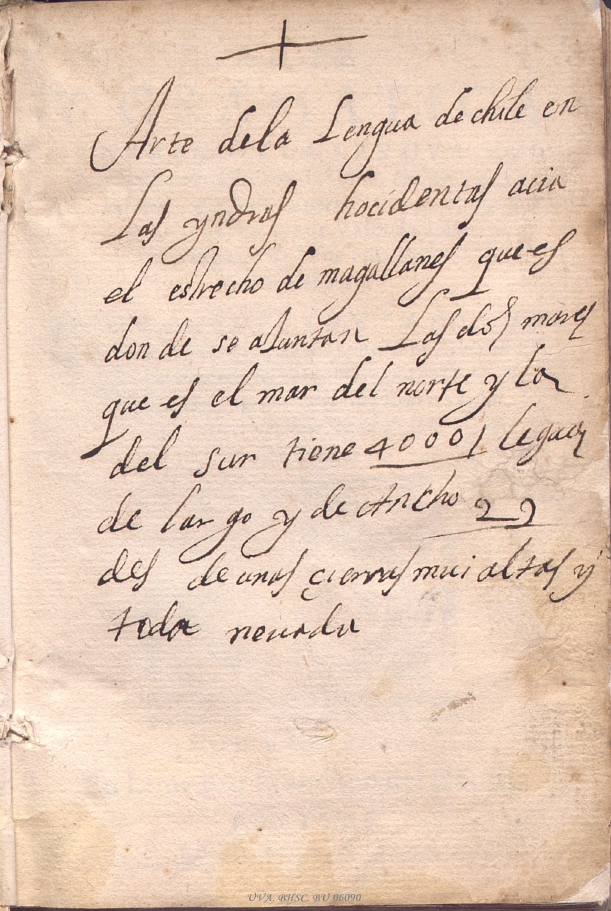 Arte dela Lengua de chile en
Las yndias hocidentas acia
el estrecho de magallanes que es
don de se aJuntan Las dos mares
que es el mar del norte y la
del sur tiene 4000 leguas
de largo y de Ancho 22
des de unas çierras mui altas y
toda neuada
UVA. BHSC. BU 06090